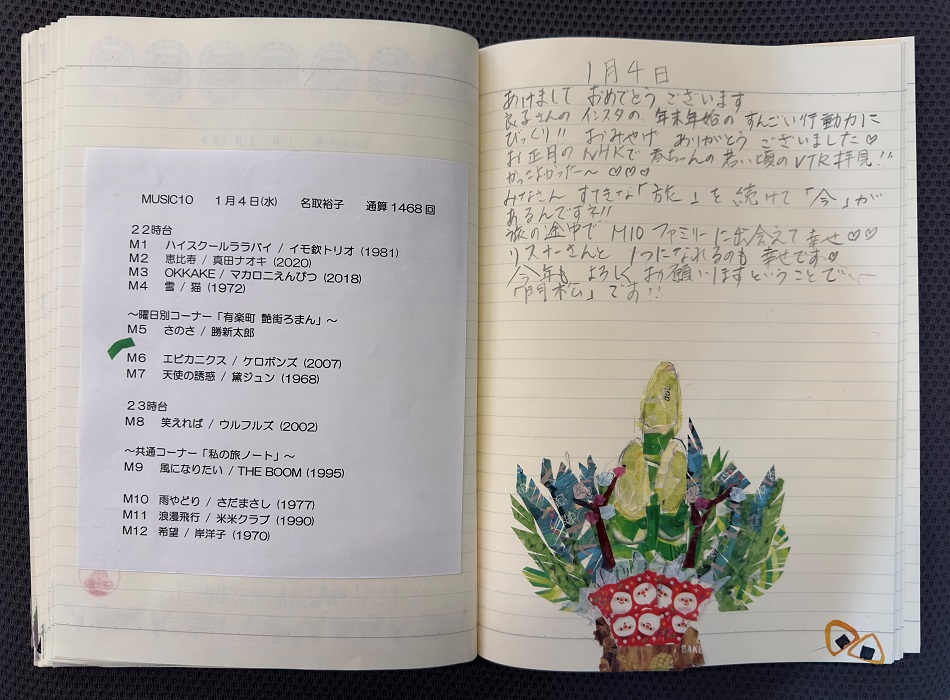 MUSIC10　1月4日(水)　名取裕子　通算1468回
22時台
M1　ハイスクールララバイ / イモ欽トリオ (1981)
M2　恵比寿 / 真田ナオキ (2020)
M3　OKKAKE / マカロニえんぴつ (2018)
M4　雪 / 猫 (1972)
～曜日別コーナー「有楽町 艶街ろまん」～
M5　さのさ / 勝新太郎
M6　エビカニクス / ケロポンズ (2007)
M7　天使の誘惑 / 黛ジュン (1968)
23時台
M8　笑えれば / ウルフルズ (2002)
～共通コーナー「私の旅ノート」～
M9　風になりたい / THE BOOM (1995)
M10　雨やどり / さだまさし (1977)
M11　浪漫飛行 / 米米クラブ (1990)
M12　希望 / 岸洋子 (1970)
1月4日
あけまして おめでとう ございます
良子さんの インスタの 年末年始の すんごい行動力に
びっくり!! おみやげ ありがとう ございました♡
お正月の NHKで 春ちゃんの 若い頃の VTR拝見!!
かっこよかった～ ♡♡♡
みなさん すてきな「旅」を 続けて「今」が
あるんですネ!!
旅の途中で M10 ファミリーに出会えて 幸せ♡♡
リスナーさんと 1つになれるのも 幸せです♡
今年も よろしく お願いしますということで
「門松」です!!
BAKE